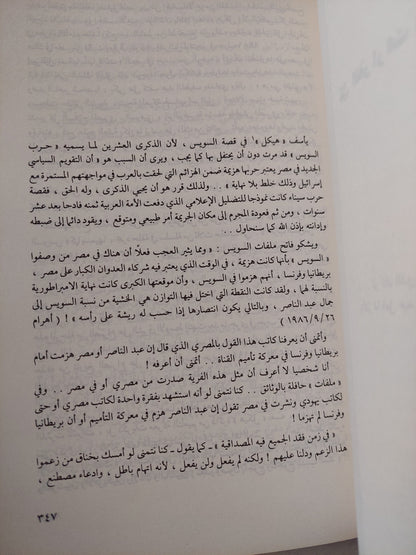 يأسف « هيكل »١ في قصة السويس ، لأن الذكرى العشرين لما يسميه « حرب
السويس » قد مرت دون أن يحتفل بها كما يجب ، ويرى أن السبب هو « أن التقويم السياسي
الجديد في مصر يعتبر حربها هزيمة ضمن الهزائم التي لحقت بالعرب في مواجهتهم المستمرة مع
إسرائيل وذلك خلط بلا نهاية » . . ولذلك قرر هو أن يحيي الذكرى ، وله الحق ، فقصة
حرب سيناء كانت نموذجا للتضليل الإعلامي الذي دفعت الأمة العربية ثمنه فادحا بعد عشر
سنوات ، ومن ثم فعودة المجرم إلى مكان الجريمة أمر طبيعي ومتوقع ، ويقود دائما إلى ضبطه
وإدانته بإذن الله كما سنحاول . .
ويشكو فاتح ملفات السويس : « ومما يثير العجب فعلا أن هناك في مصر من وصفوا
« السويس » بأنها كانت هزيمة ، في الوقت الذي يعتبر فيه شركاء العدوان الكبار على مصر ،
بريطانيا وفرنسا ، أنهم هزموا في السويس ، وأن موقعتها الكبرى كانت نهاية الامبراطورية
بالنسبة لهما ، ولقد كانت النقطة التي اختل فيها التوازن هي الخشية من نسبة السويس إلى
جمال عبد الناصر ، وبالتالي يكون انتصارها إذا حسب له ريشة على رأسه » ! ( أهرام
٢٦/٩/١٩٨٦ )
وأتمنى أن يعرفنا كاتب هذا القول بالمصري الذي قال إن عبد الناصر أو مصر هزمت أمام
بريطانيا وفرنسا في معركة تأميم القناة . . أتمنى أن أعرفه !
أنا شخصيا لا أعرف أن مثل هذه الفرية صدرت من مصري أو في مصر . . وفي
« ملفات » حافلة بالوثائق . . كنا نتمنى لو أنه استشهد بفقرة واحدة لكاتب مصري أو حتى
لكاتب يهودي ونشرت في مصر تقول إن عبد الناصر هزم في معركة التأميم أو أن بريطانيا
وفرنسا لم تهزما !
« في زمن فقد الجميع فيه المصداقية » ـ كما يقول ـ كنا نتمنى لو أمسك بخناق من زعموا
هذا الزعم ودلنا عليهم ! ولكنه لم يفعل ولن يفعل ، لأنه اتهام باطل ، وادعاء مصطنع ،
٣٤٧